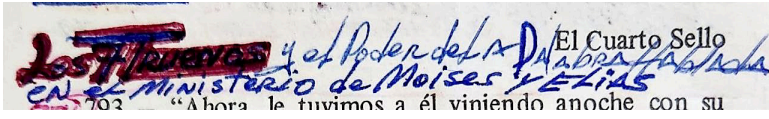 El Cuarto Sello
Los 7 Truenos y el Poder de la Palabra Hablada
EN el MiNisterio de Moises y ELias
793 – “Ahora, le tuvimos a él viniendo anoche con su